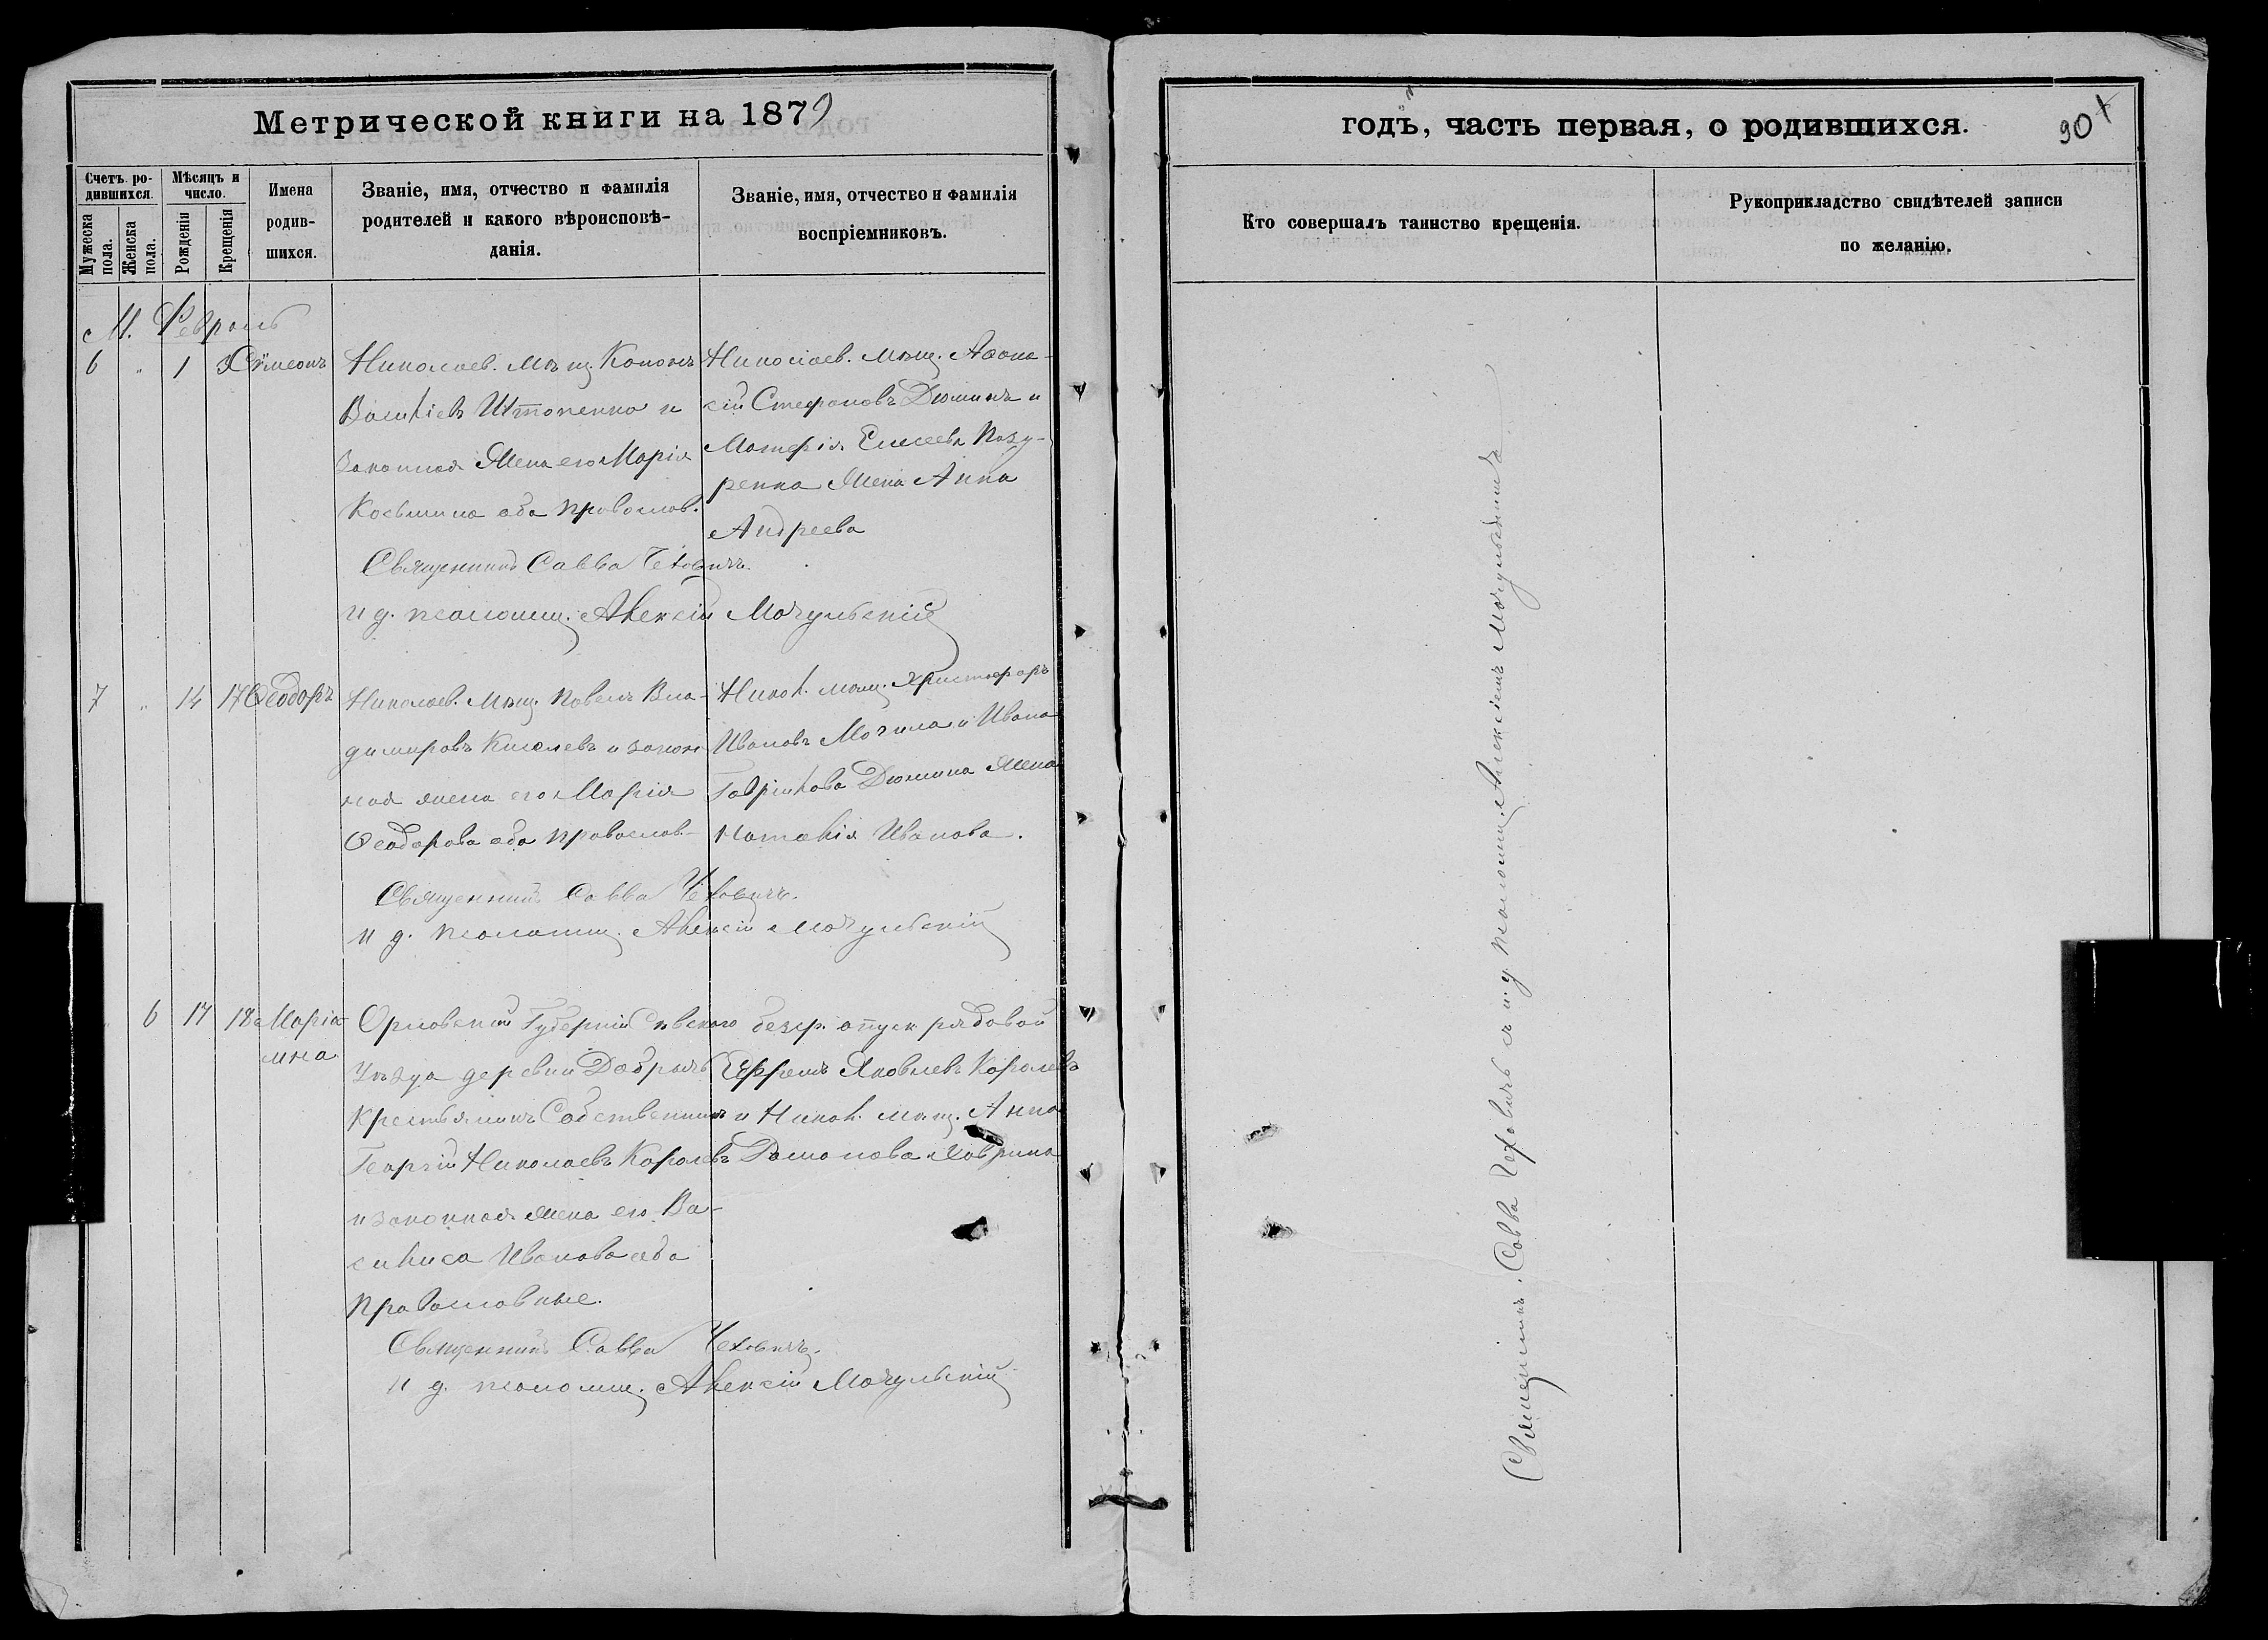 Метрической книги на 1879
Счетъ ро-
дившихся.
Мужеска пола.
Женска пола.
Мѣсяцъ и
число.
Рожденія
Крещенія
Имена
родив-
шихся.
Званіе, имя, отчество и фамилія
родителей и какого вѣроисповѣ-
данія.
Званіе, имя, отчество и фамилія
воспріемниковъ.
М. Февраль
6 " 1 3 Сѵмеонъ
Николаев. мѣщ. Кононъ
Василіевъ Штопенко и
законная жена его Марія
Косьмина оба православ.
Николаев. мѣщ. Афона-
сій Стефановъ Дюминъ и
Елисеева
жена Анна
Андреева
Священникъ Савва Чеховичъ.
и д. псаломщ. Алексій Мочульскій
7 " 14 17 Ѳеодоръ
Николаев. мѣщ. Павелъ Вла-
димировъ Киселевъ и закон-
ная жена его Марія
Ѳеодорова оба православ.
Никол. мѣщ. Христофоръ
Ивановъ Могила и Ивана
Гаврилова Дюмина жена
Наталія Иванова.
Священникъ Савва Чеховичъ.
и д. псаломщ. Алексій Мочульскій
6 17 18 Маріа-
мна
Орловской Губерніи Сѣвского
Уѣзда деревни
Крестьянинъ Собственникъ
Георгій Николаевъ Королевъ
и законная жена его Ва-
силиса Иванова оба
Православные.
безср. отпуск. рядовой
Ефремъ Яковлевъ Королевъ
и Никол. мѣщ. Анна
Ховрина
Священникъ Савва Чеховичъ.
и д. псаломщ. Алексій Мочульскій
годъ, часть первая, о родившихся.
90
Кто совершалъ таинство крещенія.
Рукоприкладство свидѣтелей записи
по желанію.
Священник. Савва Чеховичъ съ и. д. псаломщ. Алексіемъ Мочульскимъ